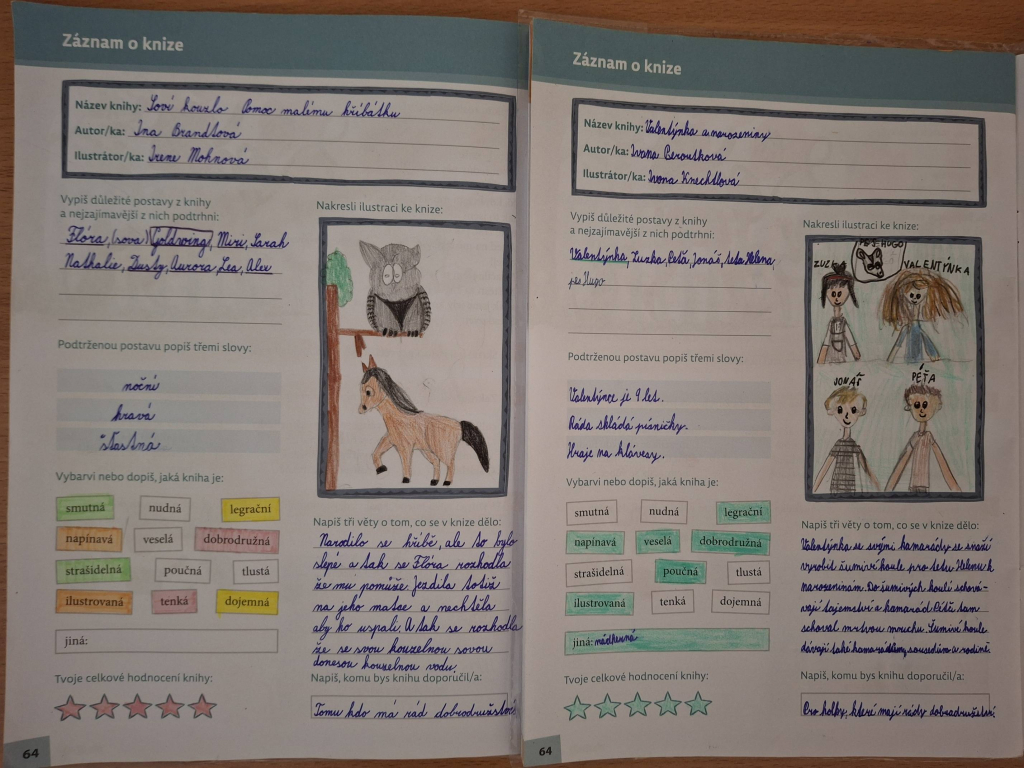 Záznam o knize
Název knihy: Soví kouzlo Pomoc malému hříbátku
Autor/ka: Ina Brandtová
Ilustrátor/ka: Irene Mohnová
Vypiš důležité postavy z knihy
a nejzajímavější z nich podtrhni:
Flóra, (sova) Goldwing, Miri, Sarah
Nathalie, Dusty, Aurora, Lea, Alex
Podtrženou postavu popiš třemi slovy:
noční
hravá
šťastná
Vybarvi nebo dopiš, jaká kniha je:
smutná nudná legrační
napínavá veselá dobrodružná
strašidelná poučná tlustá
ilustrovaná tenká dojemná
jiná:
Tvoje celkové hodnocení knihy:
Nakresli ilustraci ke knize:
Napiš tři věty o tom, co se v knize dělo:
Narodilo se hříbě, ale to bylo
slepé a tak se Flóra rozhodla
že mu pomůže. Jezdila totiž
na jeho matce a nechtěla
aby ho uspali. A tak se rozhodla
že se svou kouzelnou sovou
donesou kouzelnou vodu.
Napiš, komu bys knihu doporučil/a:
Tomu kdo má rád dobrodružství
64
Záznam o knize
Název knihy: Valentýnka a narozeniny
Autor/ka: Ivana Peroutková
Ilustrátor/ka: Ivona Knechtlová
Vypiš důležité postavy z knihy
a nejzajímavější z nich podtrhni:
Valentýnka, Zuzka, Péťa, Jonáš, teta Helena,
pes Hugo
Podtrženou postavu popiš třemi slovy:
Valentýnce je 9 let.
Ráda skládá písničky.
Hraje na klávesy.
Vybarvi nebo dopiš, jaká kniha je:
smutná nudná legrační
napínavá veselá dobrodružná
strašidelná poučná tlustá
ilustrovaná tenká dojemná
jiná: nádherná
Tvoje celkové hodnocení knihy:
Nakresli ilustraci ke knize:
PES-HUGO
VALENTÝNKA
JONÁŠ
PÉŤA
Napiš tři věty o tom, co se v knize dělo:
Valentýnka se svými kamarády se snaží
vyrobit šumivé koule pro tetu Helenu k
narozeninám. Do šumivých koulí schová-
vají tajemství a kamarád Péťa tam
schoval mrtvou mouchu. Šumivé koule
dávají také kamarádům, sousedům a rodině.
Napiš, komu bys knihu doporučil/a:
Pro holky, které mají rády dobrodružství.
64